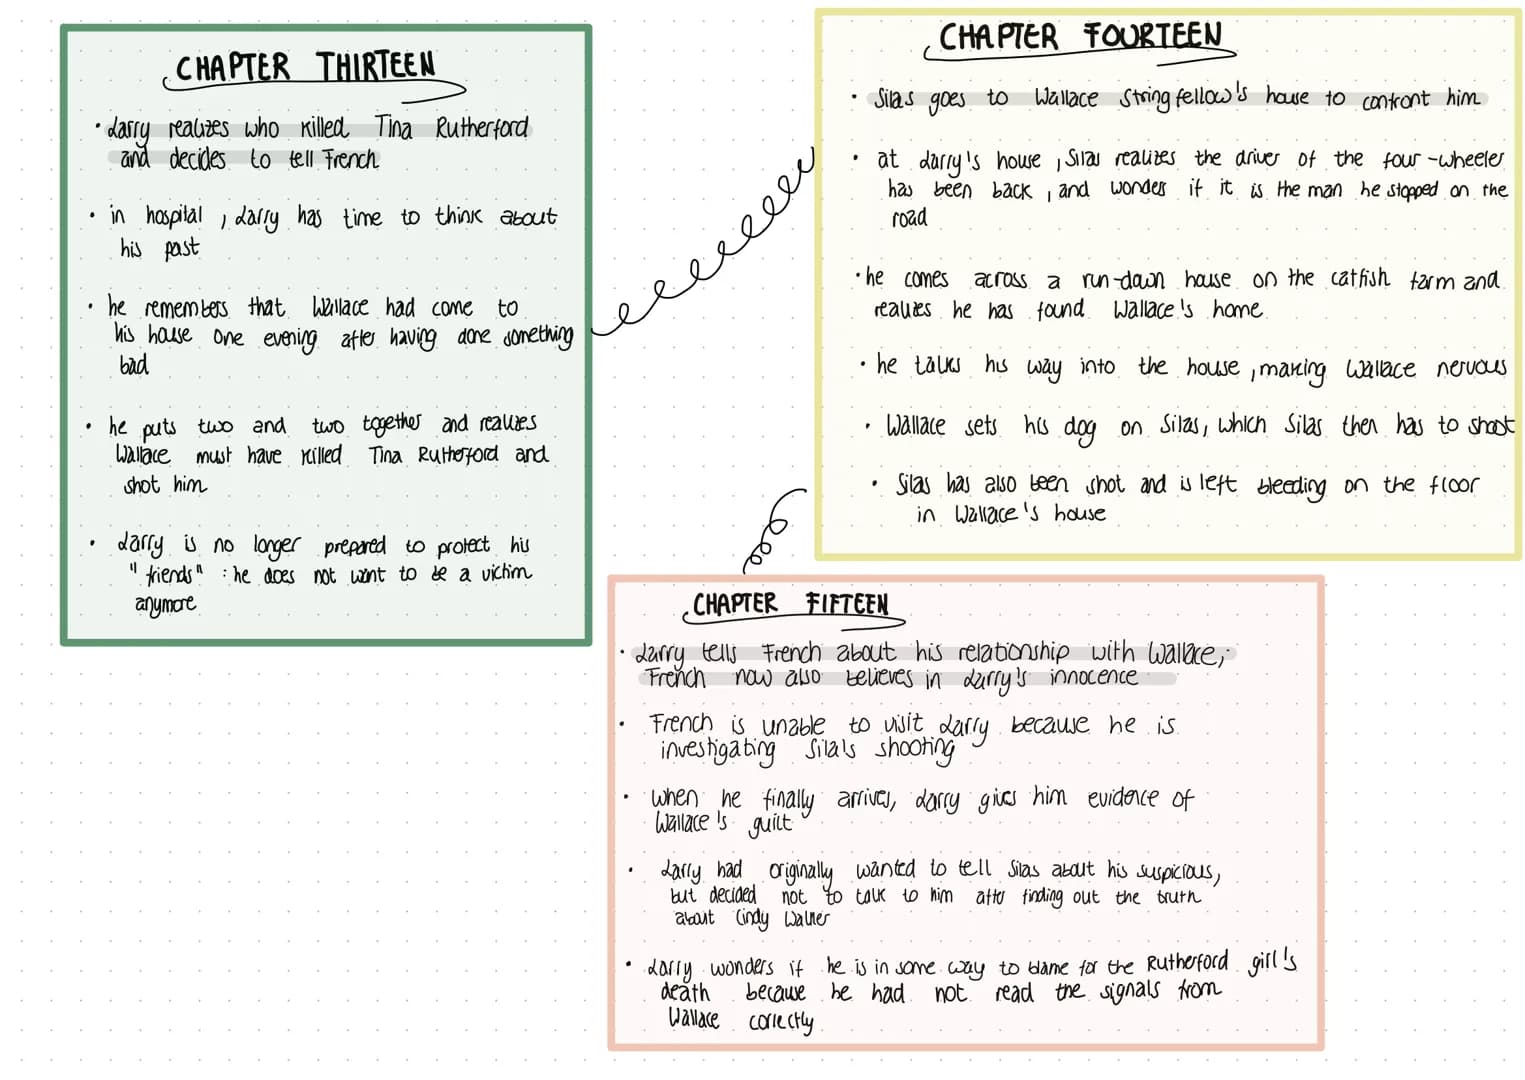 CHAPTER THIRTEEN
• Larry realizes who killed Tina Rutherford
and decides to tell French
• in hospital, Larry has time to think about
his past
• he remembers that Wallace had come to
his house one evening after having done something
bad
• he puts two and two together and realizes
Wallace must have killed Tina Rutherford and
shot him
• Larry is no longer prepared to protect his
"friends" : he does not want to be a victim
anymore
CHAPTER FOURTEEN
• Silas goes to Wallace Stringfellow's house to confront him
• at Larry's house, Silas realizes the driver of the four-wheeler
has been back, and wonders if it is the man he stopped on the
road
• he comes across a run-down house on the catfish farm and
realizes he has found Wallace's home
• he talks his way into the house, making Wallace nervous
• Wallace sets his dog on Silas, which Silas then has to shoot
• Silas has also been shot and is left bleeding on the floor
in Wallace's house
CHAPTER FIFTEEN
• Larry tells French about his relationship with Wallace,
French now also believes in Larry's innocence
• French is unable to visit Larry because he is
investigating Silals shooting
• when he finally arrives, Larry gives him evidence of
Wallace's guilt
• Larry had originally wanted to tell Silas about his suspicious,
but decided not to talk to him after finding out the truth
about Cindy Walker
• Larry wonders if he is in some way to blame for the Rutherford girl's
death because he had not read the signals from
Wallace correctly